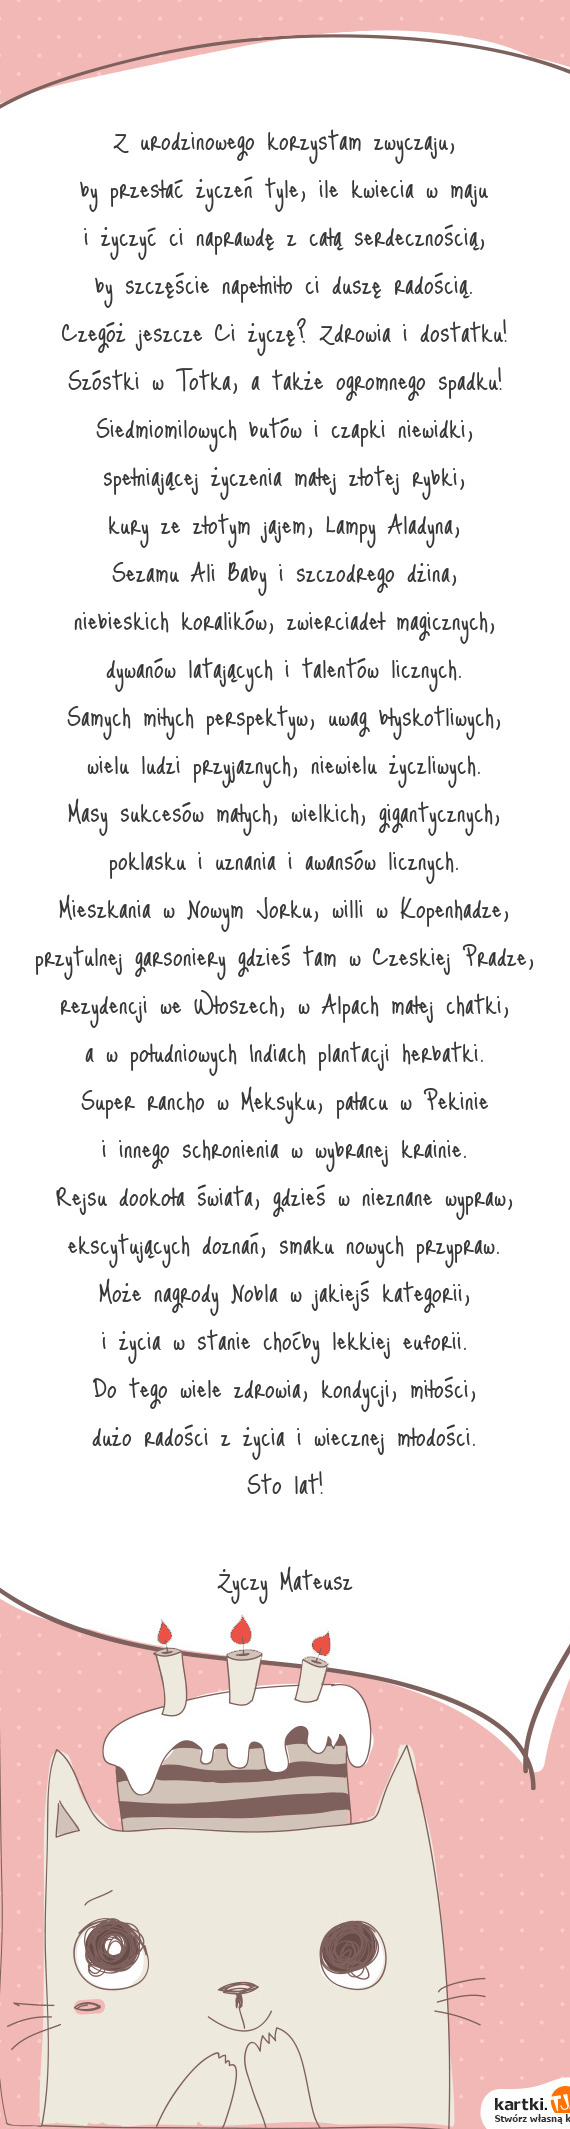 Z urodzinowego korzystam zwyczaju,
by przesłać życzeń tyle, ile kwiecia w maju
i życzyć ci naprawdę z całą serdecznością,
by szczęście napełniło ci duszę radością.
Czegóż jeszcze Ci życzę? Zdrowia i dostatku!
Szóstki w Totka, a także ogromnego spadku!
Siedmiomilowych butów i czapki niewidki,
spełniającej życzenia małej złotej rybki,
kury ze złotym jajem, Lampy Aladyna,
Sezamu Ali Baby i szczodrego dżina,
niebieskich koralików, zwierciadeł magicznych,
dywanów latających i talentów licznych.
Samych miłych perspektyw, uwag błyskotliwych,
wielu ludzi przyjaznych, niewielu życzliwych.
Masy sukcesów małych, wielkich, gigantycznych,
poklasku i uznania i awansów licznych.
Mieszkania w Nowym Jorku, willi w Kopenhadze,
przytulnej garsoniery gdzieś tam w Czeskiej Pradze,
rezydencji we Włoszech, w Alpach małej chatki,
a w południowych Indiach plantacji herbatki.
Super rancho w Meksyku, pałacu w Pekinie
i innego schronienia w wybranej krainie.
Rejsu dookoła świata, gdzieś w nieznane wypraw,
ekscytujących doznań, smaku nowych przypraw.
Może nagrody Nobla w jakiejś kategorii,
i życia w stanie choćby lekkiej euforii.
Do tego wiele zdrowia, kondycji, miłości,
dużo radości z życia i wiecznej młodości.
Sto lat!
Życzy Mateusz
kartki.TJ
Stwórz własną k